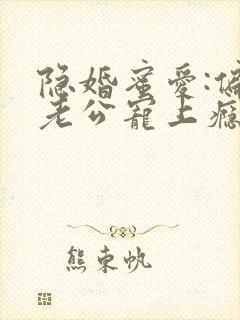 隐婚蜜爱:偏
老公宠上瘾
熊束帆